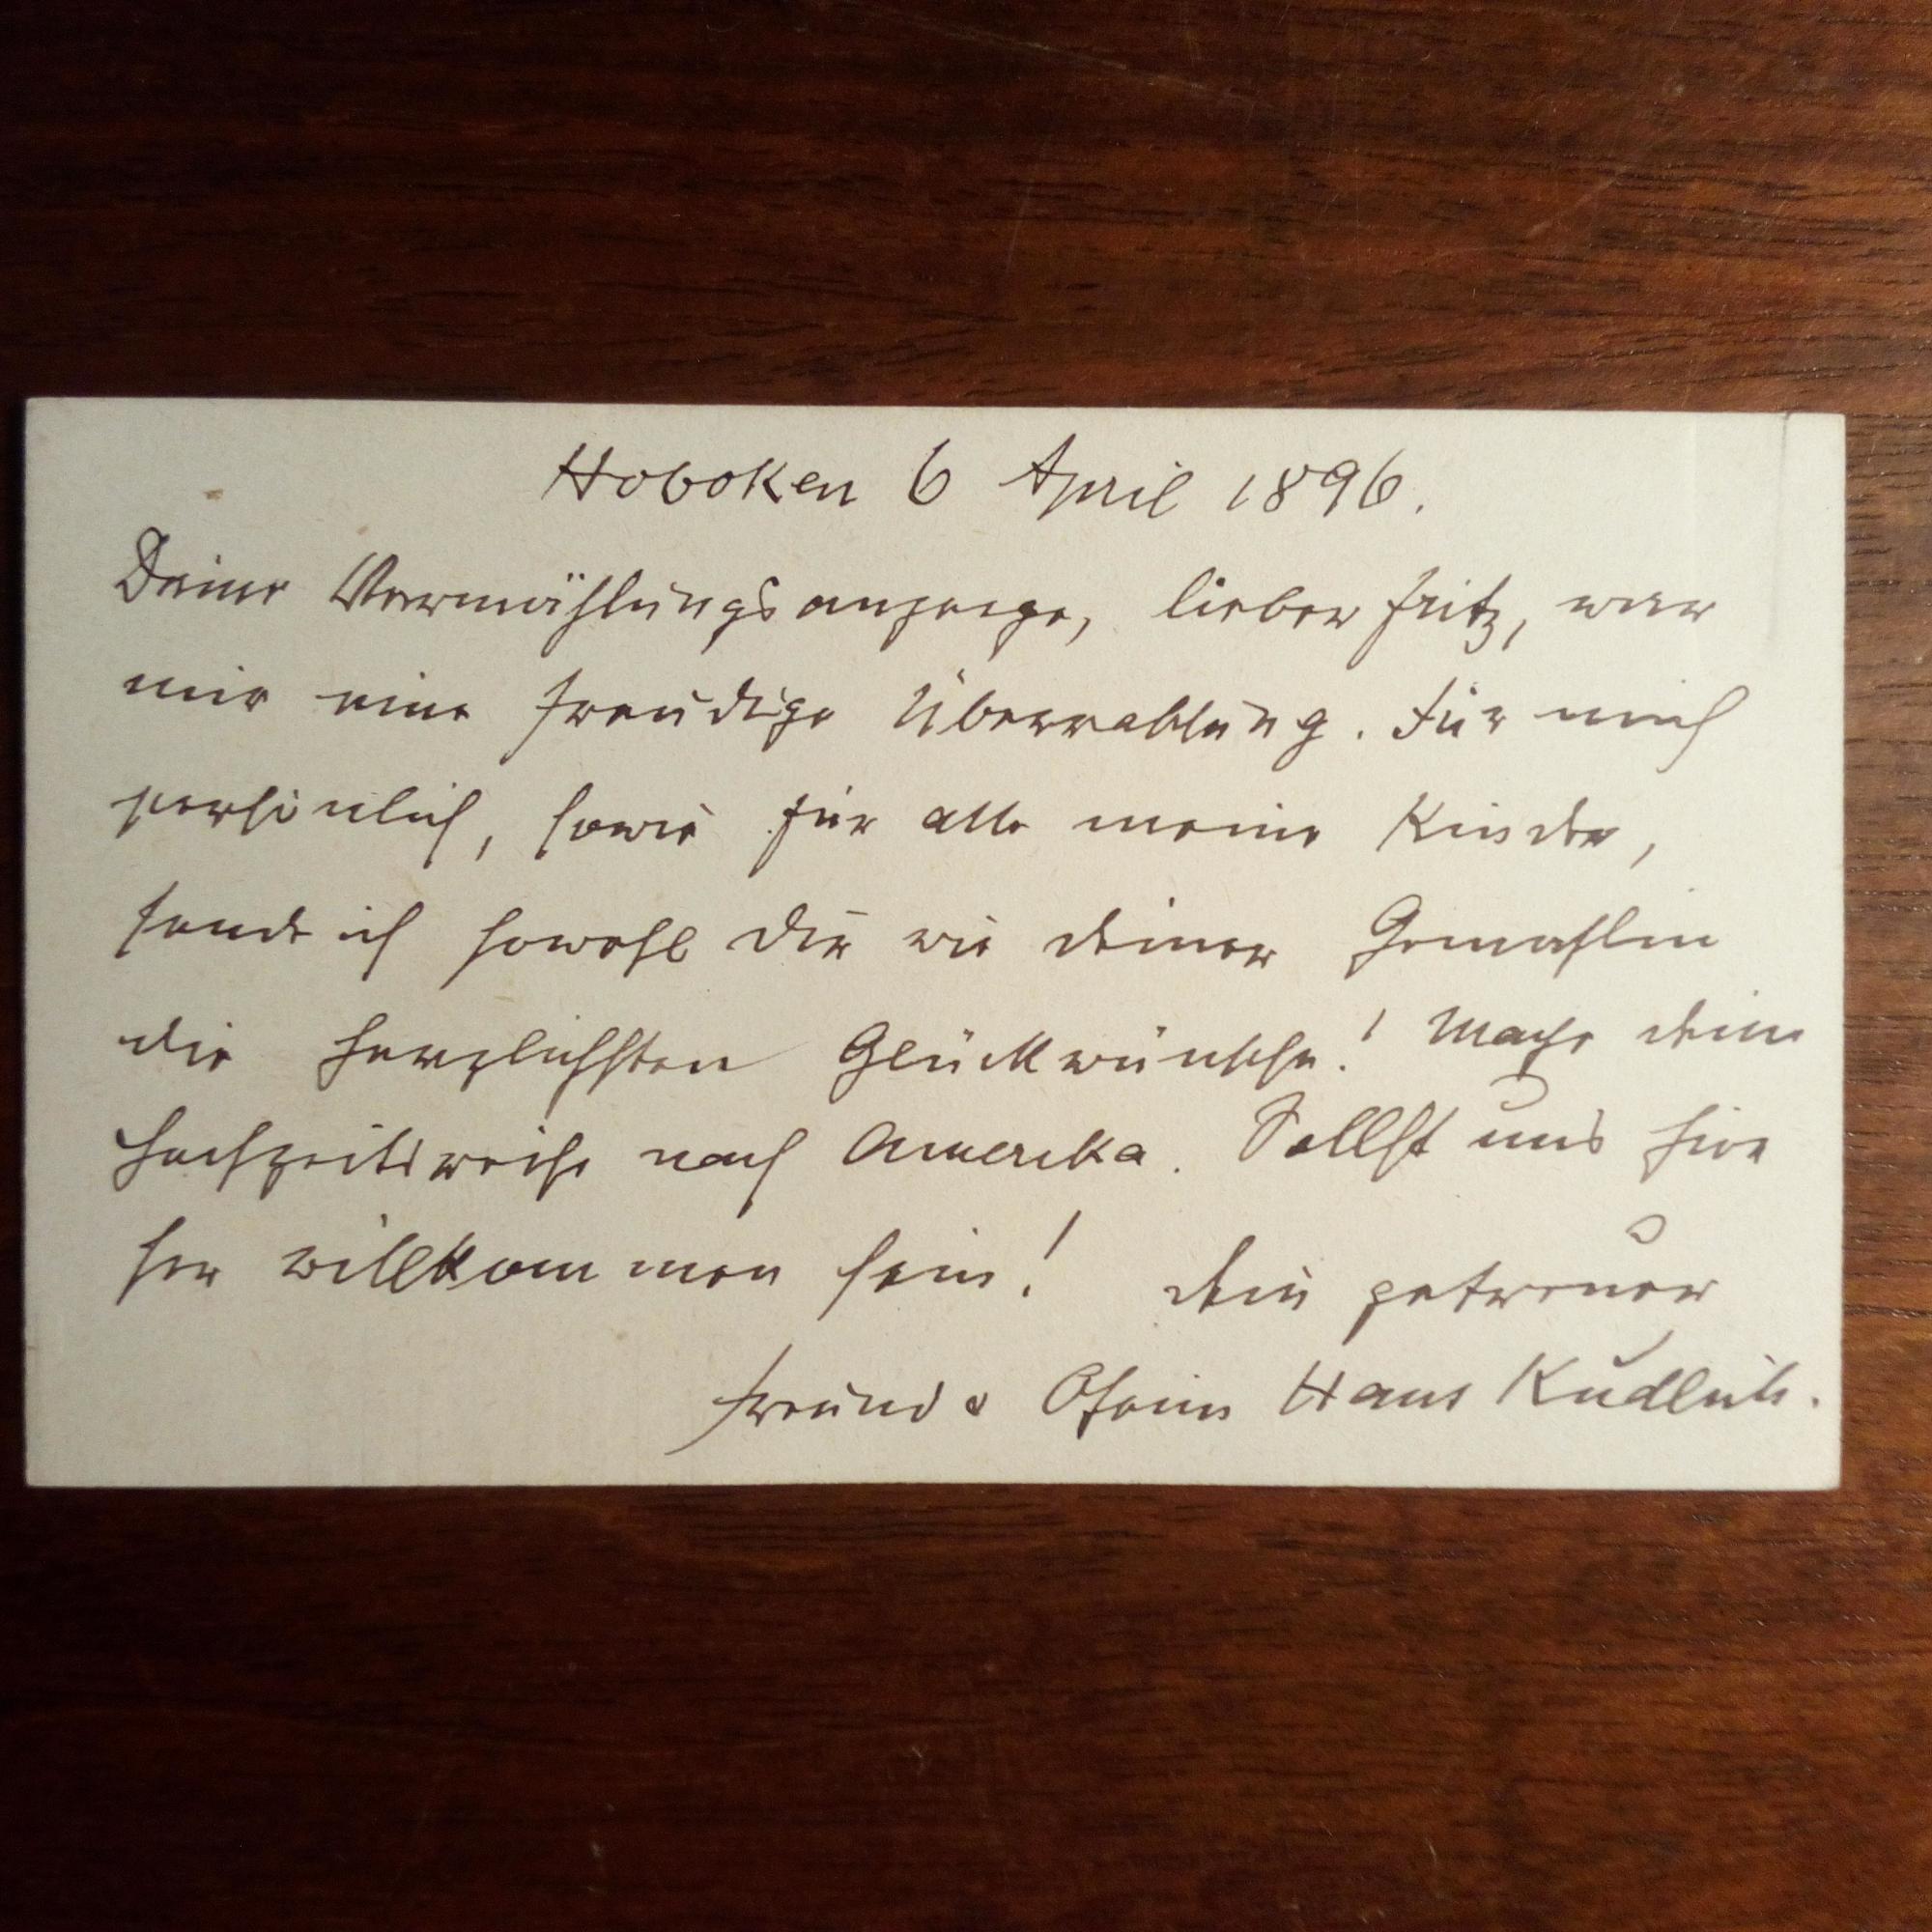 Hoboken 6 April 1896.
Deine Vermählungsanzeige, lieber Fritz, war
mir eine freudige Überraschung. Für mich
persönlich, sowie für alle meine Kinder,
sende ich sowohl dir wie deiner Gemahlin
die herzlichsten Glückwünsche! Mache deine
Hochzeitsreise nach Amerika. Sollst uns hier
sehr willkommen sein! dein getreuer
Freund & Oheim Hans Kudlich.